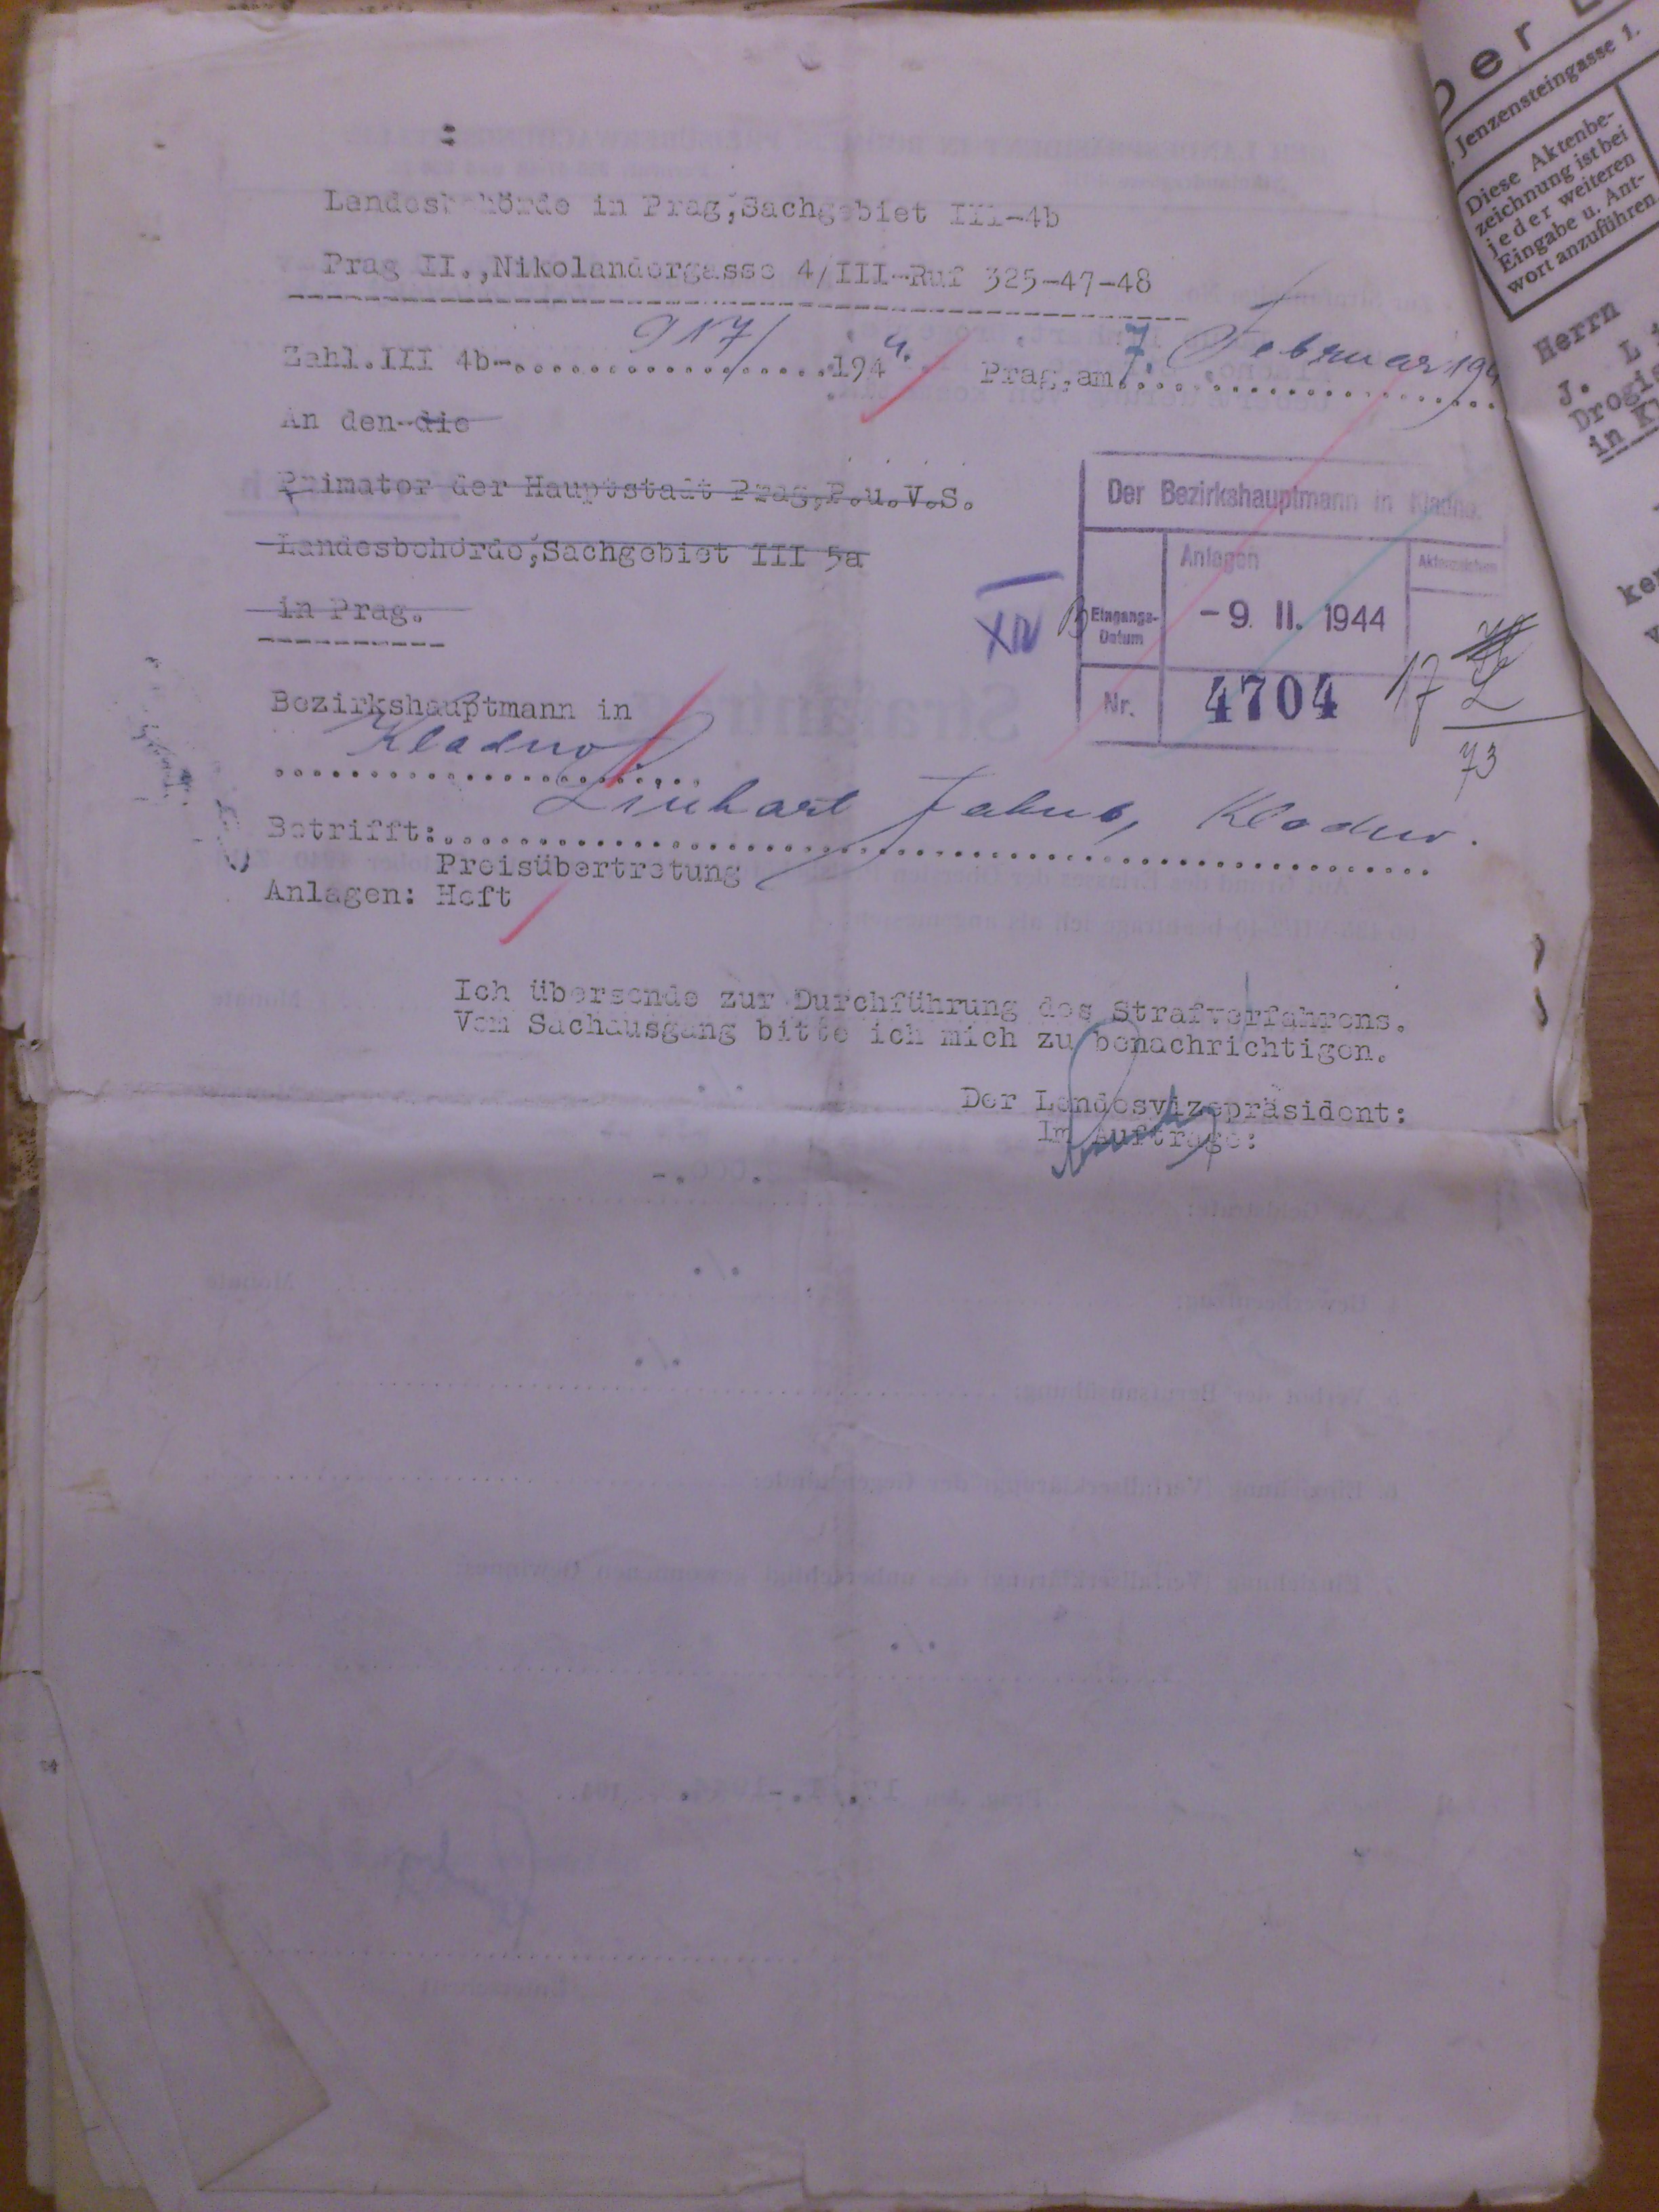 Landesbehörde in Prag, Sachgebiet III-4b
Prag II., Nikolandergasse 4/III-Ruf 325-47-48
Zahl.III 4b-.917/.1944. Prag, am 7. Februar 194
An den die
Primator der Hauptstadt Prag, P.u.V.S.
Landesbehörde, Sachgebiet III 5a
in Prag.
Der Bezirkshauptmann in Kladno.
Anlagen
Aktenzeichen
Eingangs-
Datum
- 9. II. 1944
Nr.
4704
XIV
B
17
73
Bezirkshauptmann in
Kladno
Betrifft: Linhart Jakub, Kladno.
Preisübertretung
Anlagen: Heft
Ich übersende zur Durchführung des Strafverfahrens.
Vom Sachausgang bitte ich mich zu benachrichtigen.
Der Landesvizepräsident:
Im Auftrage:
Der
Jenzensteingasse 1.
Diese Aktenbe-
zeichnung ist bei
jeder weiteren
Eingabe u. Ant-
wort anzuführen
Herrn
J. L
Drogis
in Kl